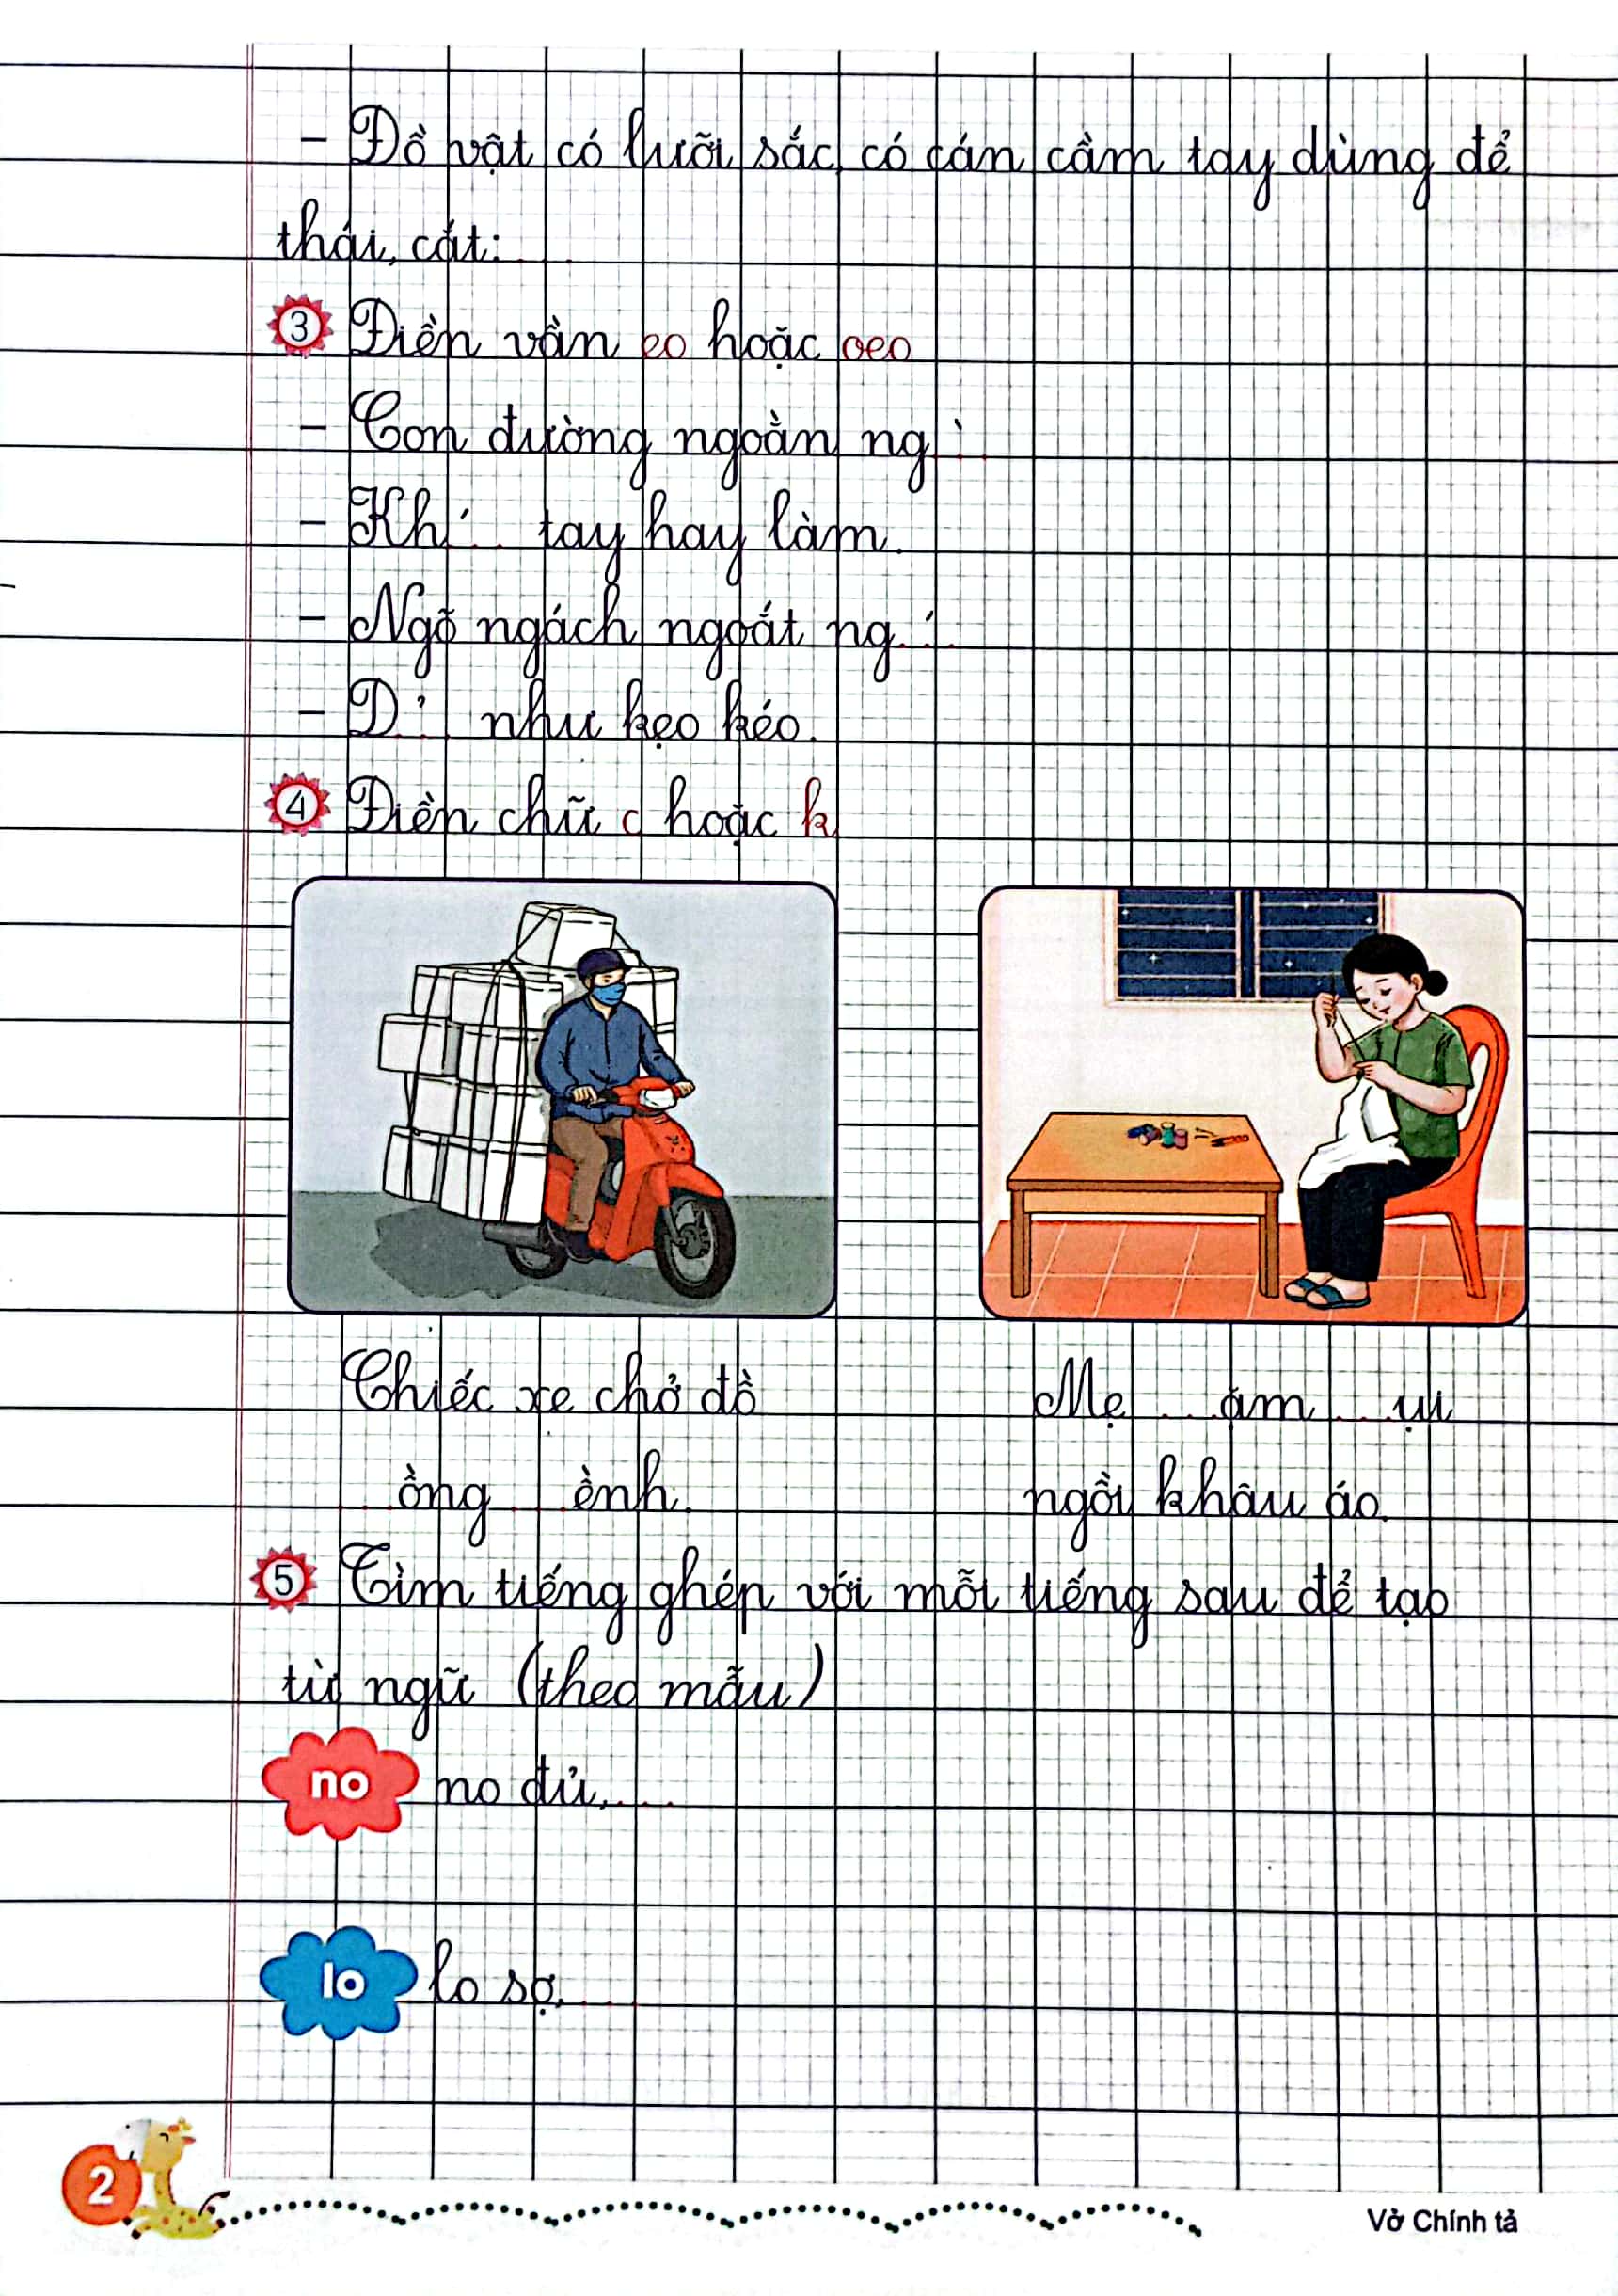 - Đồ vật có lưỡi sắc, có cán cầm tay dùng để
thái, cắt: ....
3 Điền vần eo hoặc oeo
- Con đường ngoằn ng...̀...
- Kh...́... tay hay làm.
- Ngõ ngách ngoắt ng...́...
- D...̉... như kẹo kéo.
4 Điền chữ c hoặc k
Chiếc xe chở đồ
...ồng ...ềnh.
Mẹ ...ặm ...ụi
ngồi khâu áo.
5 Tìm tiếng ghép với mỗi tiếng sau để tạo
từ ngữ (theo mẫu)
no no đủ, ....
lo lo sợ, ....
2
Vở Chính tả